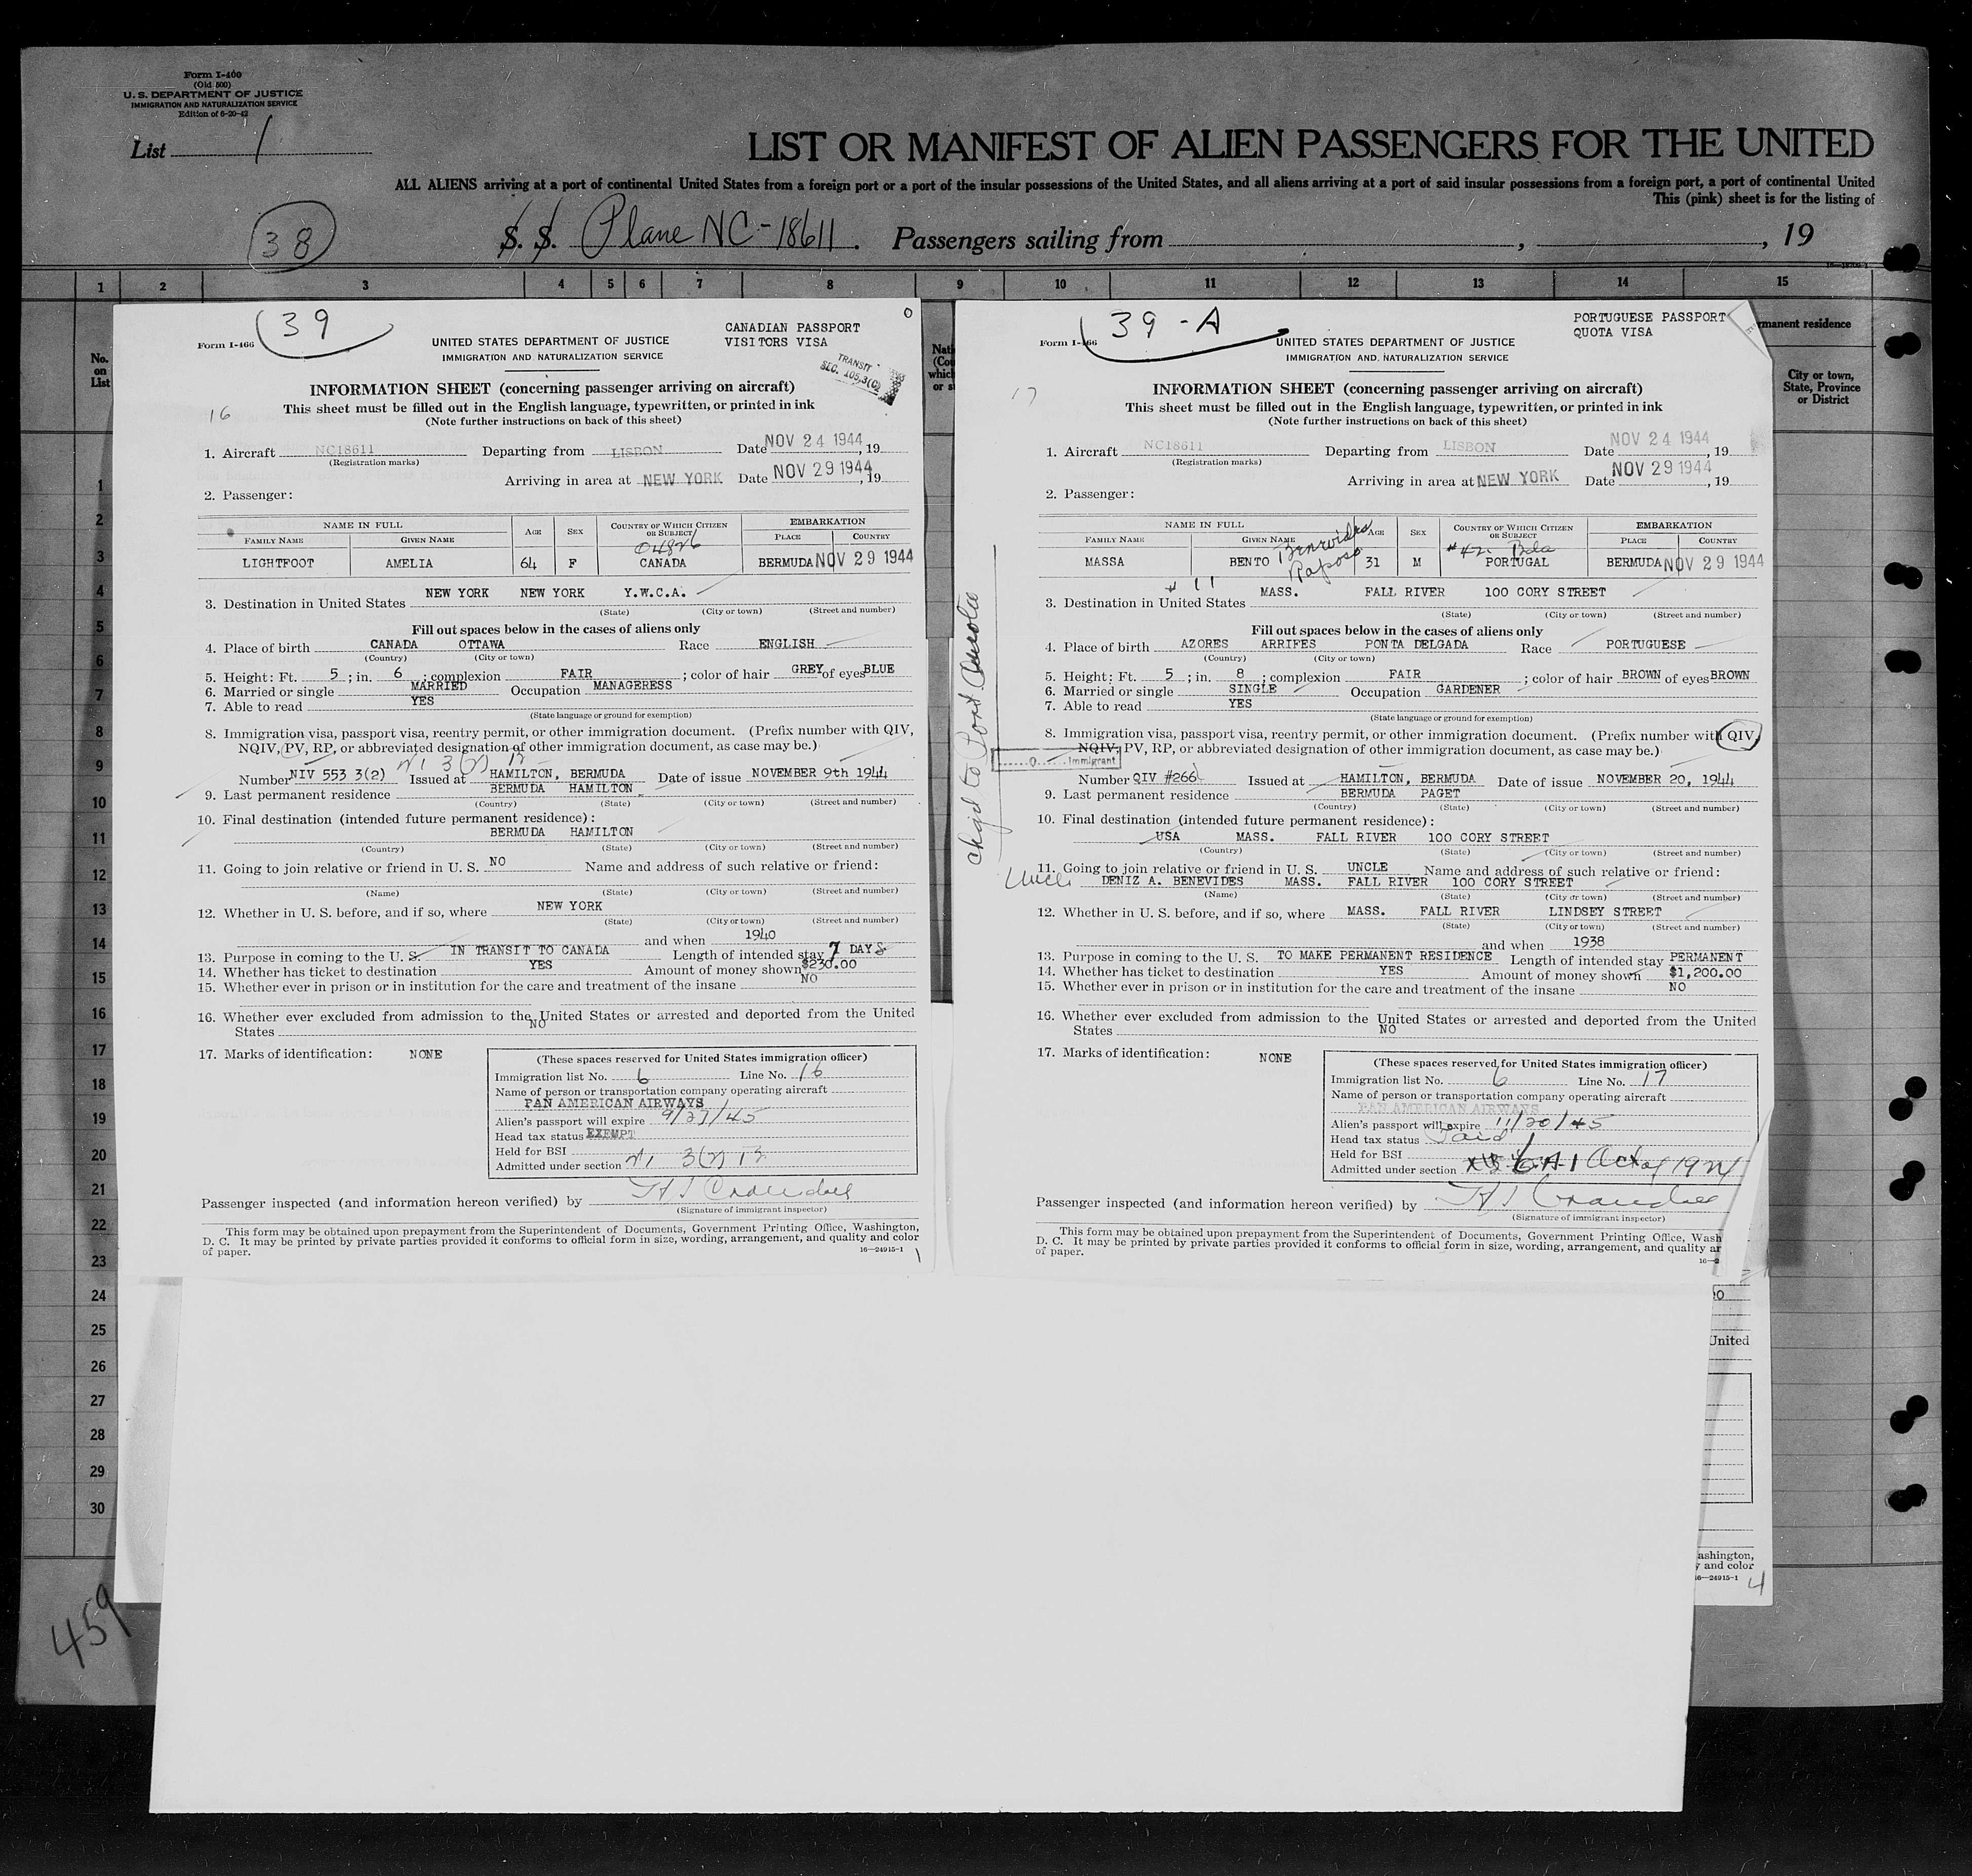 Form I-400
(Old 500)
U. S. DEPARTMENT OF JUSTICE
IMMIGRATION AND NATURALIZATION SERVICE
Edition of 6-20-42
List 1
LIST OR MANIFEST OF ALIEN PASSENGERS FOR THE UNITED
ALL ALIENS arriving at a port of continental United States from a foreign port or a port of the insular possessions of the United States, and all aliens arriving at a port of said insular possessions from a foreign port, a port of continental United
This (pink) sheet is for the listing of
38
S. S. Plane NC-18611. Passengers sailing from , , 19
1 2 3 4 5 6 7 8 9 10 11 12 13 14 15
No. on List
manent residence
City or town, State, Province or District
1
2
3
4
5
6
7
8
9
10
11
12
13
14
15
16
17
18
19
20
21
22
23
24
25
26
27
28
29
30
459
39
0
Form I-466
CANADIAN PASSPORT
VISITORS VISA
UNITED STATES DEPARTMENT OF JUSTICE
IMMIGRATION AND NATURALIZATION SERVICE
TRANSIT
SEC. 105.3(C)
INFORMATION SHEET (concerning passenger arriving on aircraft)
16
This sheet must be filled out in the English language, typewritten, or printed in ink
(Note further instructions on back of this sheet)
1. Aircraft NC18611 Departing from LISBON Date NOV 24 1944, 19
(Registration marks)
Arriving in area at NEW YORK Date NOV 29 1944, 19
2. Passenger:
NAME IN FULL AGE SEX COUNTRY OF WHICH CITIZEN OR SUBJECT EMBARKATION
FAMILY NAME GIVEN NAME PLACE COUNTRY
04826
LIGHTFOOT AMELIA 64 F CANADA BERMUDA NOV 29 1944
3. Destination in United States NEW YORK NEW YORK Y.W.C.A.
(State) (City or town) (Street and number)
Fill out spaces below in the cases of aliens only
4. Place of birth CANADA OTTAWA Race ENGLISH
(Country) (City or town)
5. Height: Ft. 5 ; in. 6 ; complexion FAIR ; color of hair GREY of eyes BLUE
6. Married or single MARRIED Occupation MANAGERESS
7. Able to read YES
(State language or ground for exemption)
8. Immigration visa, passport visa, reentry permit, or other immigration document. (Prefix number with QIV,
NQIV, PV, RP, or abbreviated designation of other immigration document, as case may be.)
Number NIV 553 3(2) Issued at HAMILTON, BERMUDA Date of issue NOVEMBER 9th 1944
9. Last permanent residence BERMUDA HAMILTON
(Country) (State) (City or town) (Street and number)
10. Final destination (intended future permanent residence):
BERMUDA HAMILTON
(Country) (State) (City or town) (Street and number)
11. Going to join relative or friend in U. S. NO Name and address of such relative or friend:
(Name) (State) (City or town) (Street and number)
12. Whether in U. S. before, and if so, where NEW YORK
(State) (City or town) (Street and number)
and when 1940
13. Purpose in coming to the U. S. IN TRANSIT TO CANADA Length of intended stay 7 DAYS
14. Whether has ticket to destination YES Amount of money shown $230.00
15. Whether ever in prison or in institution for the care and treatment of the insane NO
16. Whether ever excluded from admission to the United States or arrested and deported from the United
States NO
17. Marks of identification: NONE
(These spaces reserved for United States immigration officer)
Immigration list No. 6 Line No. 16
Name of person or transportation company operating aircraft
PAN AMERICAN AIRWAYS
Alien's passport will expire 9/27/45
Head tax status EXEMPT
Held for BSI
Admitted under section 3(2)
Passenger inspected (and information hereon verified) by
(Signature of immigrant inspector)
This form may be obtained upon prepayment from the Superintendent of Documents, Government Printing Office, Washington,
D. C. It may be printed by private parties provided it conforms to official form in size, wording, arrangement, and quality and color
of paper.
16—24915-1
39-A
Form I-466
PORTUGUESE PASSPORT
QUOTA VISA
UNITED STATES DEPARTMENT OF JUSTICE
IMMIGRATION AND NATURALIZATION SERVICE
INFORMATION SHEET (concerning passenger arriving on aircraft)
17
This sheet must be filled out in the English language, typewritten, or printed in ink
(Note further instructions on back of this sheet)
1. Aircraft NC18611 Departing from LISBON Date NOV 24 1944, 19
(Registration marks)
Arriving in area at NEW YORK Date NOV 29 1944, 19
2. Passenger:
NAME IN FULL AGE SEX COUNTRY OF WHICH CITIZEN OR SUBJECT EMBARKATION
FAMILY NAME GIVEN NAME PLACE COUNTRY
Benevides Raposo
#42 Bda
MASSA BENTO 31 M PORTUGAL BERMUDA NOV 29 1944
3. Destination in United States MASS. FALL RIVER 100 CORY STREET
(State) (City or town) (Street and number)
Fill out spaces below in the cases of aliens only
4. Place of birth AZORES ARRIFES PONTA DELGADA Race PORTUGUESE
(Country) (City or town)
5. Height: Ft. 5 ; in. 8 ; complexion FAIR ; color of hair BROWN of eyes BROWN
6. Married or single SINGLE Occupation GARDENER
7. Able to read YES
(State language or ground for exemption)
8. Immigration visa, passport visa, reentry permit, or other immigration document. (Prefix number with QIV,
NQIV, PV, RP, or abbreviated designation of other immigration document, as case may be.)
0 Immigrant
Number QIV #266 Issued at HAMILTON, BERMUDA Date of issue NOVEMBER 20, 1944
9. Last permanent residence BERMUDA PAGET
(Country) (State) (City or town) (Street and number)
10. Final destination (intended future permanent residence):
USA MASS. FALL RIVER 100 CORY STREET
(Country) (State) (City or town) (Street and number)
11. Going to join relative or friend in U. S. UNCLE Name and address of such relative or friend:
Uncle DENIZ A. BENEVIDES MASS. FALL RIVER 100 CORY STREET
(Name) (State) (City or town) (Street and number)
12. Whether in U. S. before, and if so, where MASS. FALL RIVER LINDSEY STREET
(State) (City or town) (Street and number)
and when 1938
13. Purpose in coming to the U. S. TO MAKE PERMANENT RESIDENCE Length of intended stay PERMANENT
14. Whether has ticket to destination YES Amount of money shown $1,200.00
15. Whether ever in prison or in institution for the care and treatment of the insane NO
16. Whether ever excluded from admission to the United States or arrested and deported from the United
States NO
17. Marks of identification: NONE
(These spaces reserved for United States immigration officer)
Immigration list No. 6 Line No. 17
Name of person or transportation company operating aircraft
PAN AMERICAN AIRWAYS
Alien's passport will expire 11/20/45
Head tax status Paid
Held for BSI
Admitted under section 6-A-1 Act of 1924
Passenger inspected (and information hereon verified) by
(Signature of immigrant inspector)
This form may be obtained upon prepayment from the Superintendent of Documents, Government Printing Office, Wash
D. C. It may be printed by private parties provided it conforms to official form in size, wording, arrangement, and quality ar
of paper.
16—2
Chgd to Port
United
ashington,
and color
16—24915-1
4